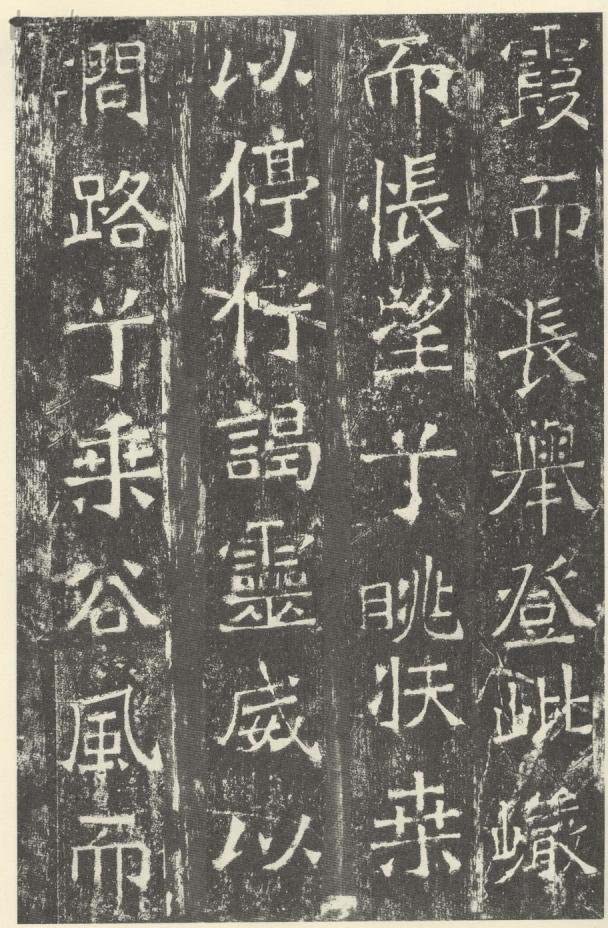 霞而長舉登
而悵望兮眺扶桑
以停佇謁靈威以
問路兮乘谷風而